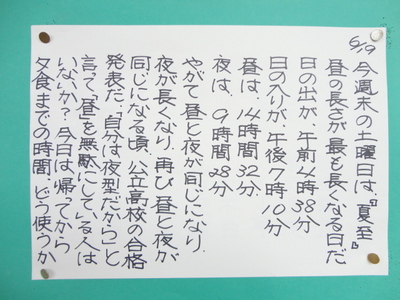 6/19
今週末の土曜日は、『夏至』
昼の長さが最も長くなる日だ
日の出が、午前4時38分
日の入りが、午後7時10分
昼は、14時間32分
夜は、9時間28分
やがて昼と夜が同じになり、
夜が長くなり、再び昼と夜が
同じになる頃、公立高校の合格
発表だ。「自分は夜型だから」と
言って「昼」を無駄にしている人は
いないか？今日は帰ってから
夕食までの時間、どう使うか